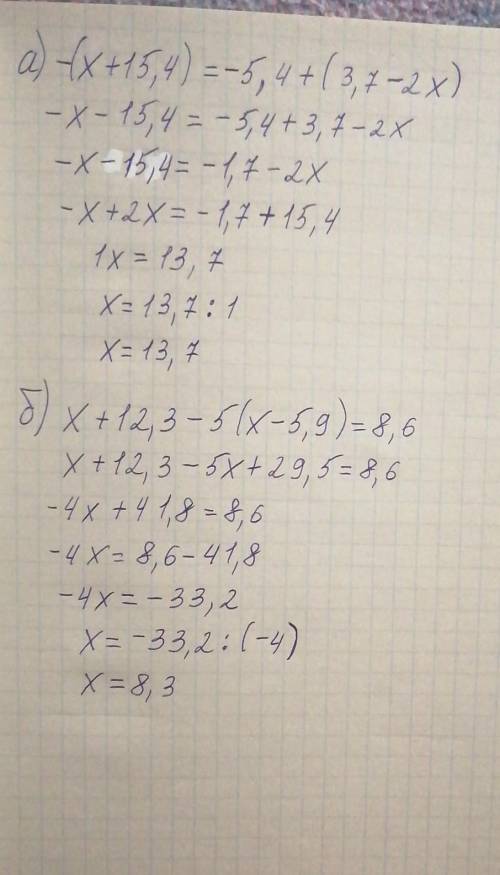 а) -(x+15,4)=-5,4+(3,7-2x)
-x-15,4=-5,4+3,7-2x
-x-15,4=-1,7-2x
-x+2x=-1,7+15,4
1x=13,7
x=13,7:1
x=13,7
б) x+12,3-5(x-5,9)=8,6
x+12,3-5x+29,5=8,6
-4x+41,8=8,6
-4x=8,6-41,8
-4x=-33,2
x=-33,2:(-4)
x=8,3